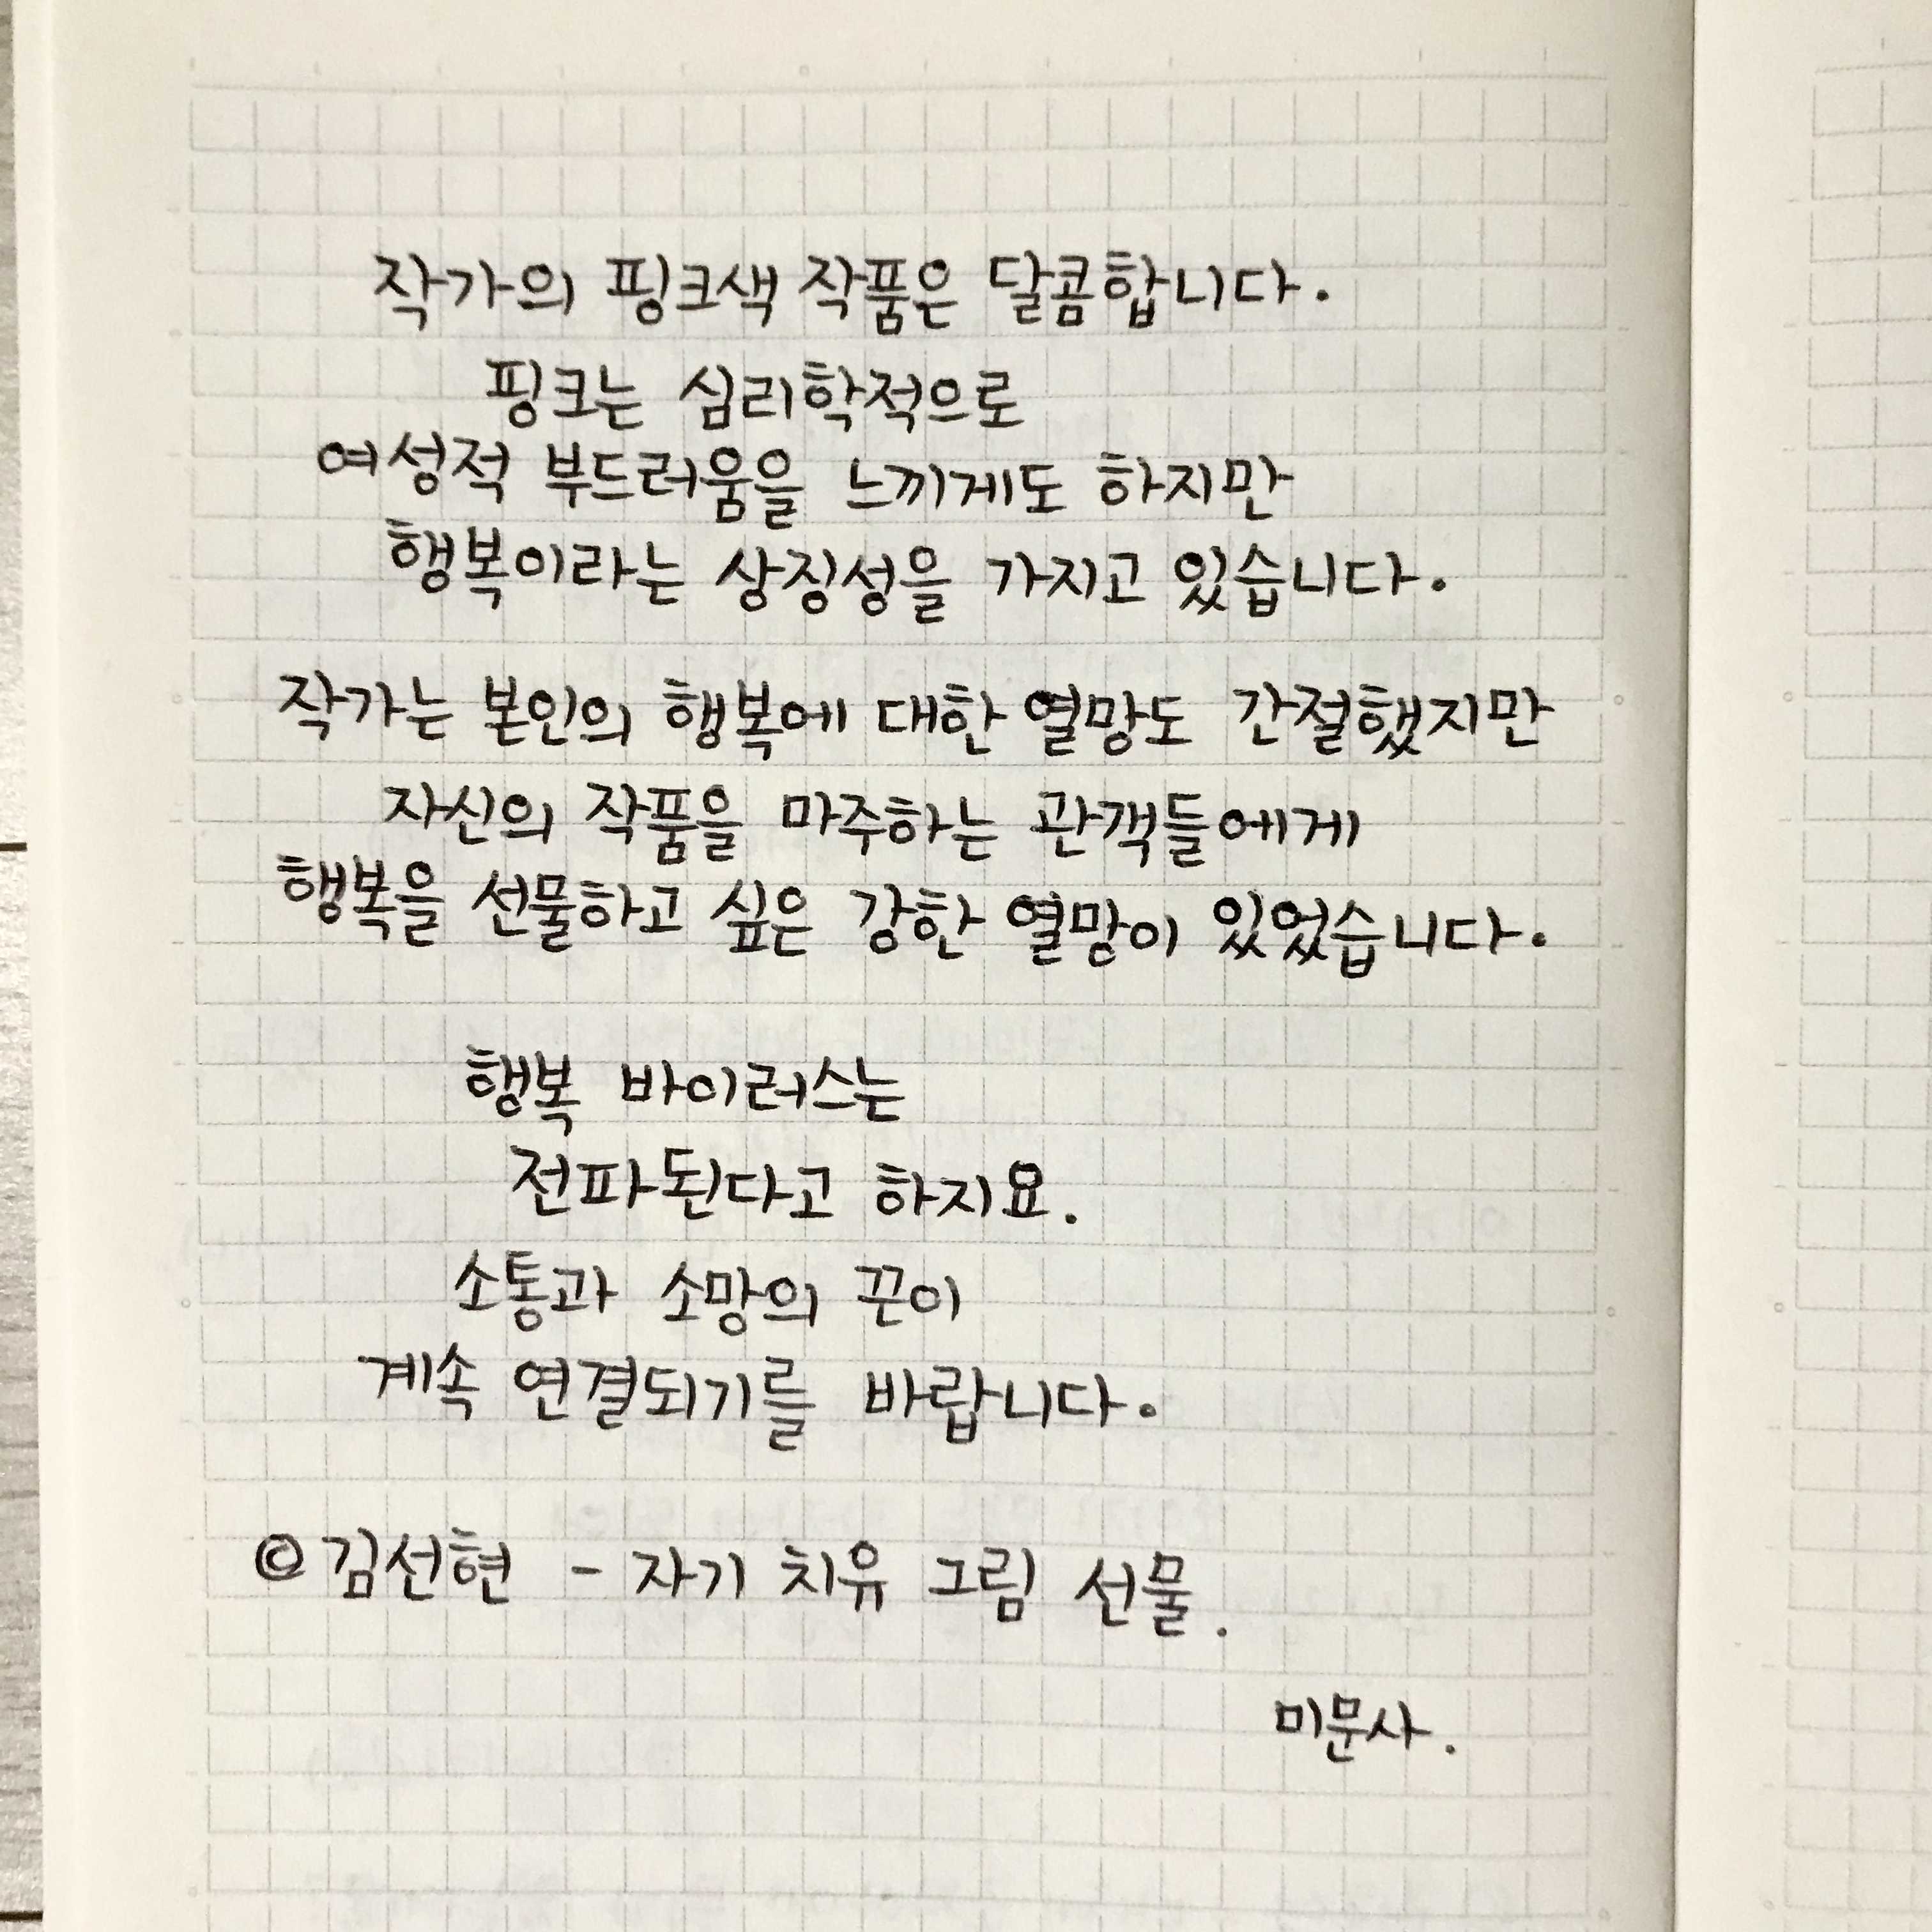 작가의 핑크색 작품은 달콤합니다.
핑크는 심리학적으로
여성적 부드러움을 느끼게도 하지만
행복이라는 상징성을 가지고 있습니다.
작가는 본인의 행복에 대한 열망도 간절했지만
자신의 작품을 마주하는 관객들에게
행복을 선물하고 싶은 강한 열망이 있었습니다.
행복 바이러스는
전파된다고 하지요.
소통과 소망의 끈이
계속 연결되기를 바랍니다.
© 김선현 - 자기 치유 그림 선물.
미문사.